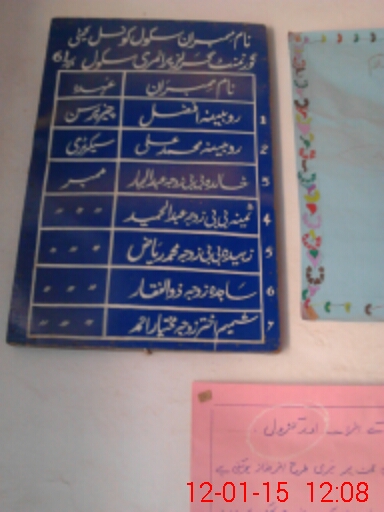 نام ممبران سکول کونسل کمیٹی
گورنمنٹ گرلز پرائمری سکول
نام ممبران عہدہ
1 روبینہ افضل چیئرپرسن
2 روبینہ محمد علی سیکرٹری
3 خالدہ بی بی زوجہ عبدالجبار ممبر
4 ثمینہ بی بی زوجہ عبدالحمید " " "
5 زبیدہ بی بی زوجہ محمد ریاض " " "
6 ساجدہ زوجہ ذوالفقار " " "
7 شمیم اختر زوجہ مختیار احمد " " "
اور تنزولی
بری طرح
12-01-15 12:08